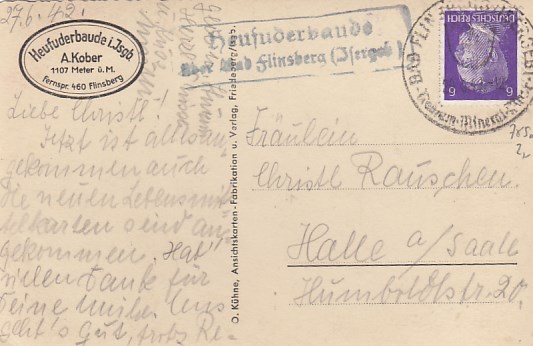 27.6.43.
Heufuderbaude i. Jsgb.
A. Kober
1107 Meter ü. M.
Fernspr. 460 Flinsberg
Heufuderbaude
über Bad Flinsberg (Isergeb.)
BAD FLIN
DEUTSCHES REICH
6 6
Liebe Christl!
Jetzt ist alles an
gekommen auch
die neuen Lebensmit
telkarten sind an
gekommen. Hab
vielen Dank für
Deine Mühe. Uns
geht's gut, trotz Re-
O. Kühne, Ansichtskarten-Fabrikation u. Verlag, Friedeberg/Isb.
Fräulein
Christl Rauschen.
Halle a/Saale
Humboldtstr. 20.